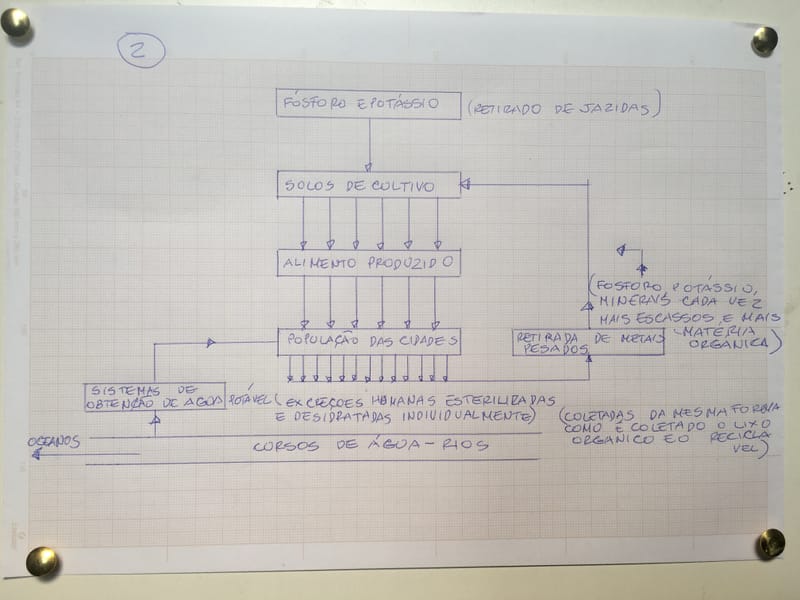 2
FÓSFORO E POTÁSSIO
(RETIRADO DE JAZIDAS)
SOLOS DE CULTIVO
ALIMENTO PRODUZIDO
(FOSFORO, POTÁSSIO,
MINERAIS CADA VEZ
MAIS ESCASSOS, E MAIS
MATÉRIA
ORGANICA)
POPULAÇÃO DAS CIDADES
RETIRADA DE METAIS
PESADOS
SISTEMAS DE
OBTENÇÃO DE AGUA POTÁVEL
(EXCREÇÕES HUMANAS ESTERILIZADAS
E DESIDRATADAS INDIVIDUALMENTE)
(COLETADAS DA MESMA FORMA
COMO É COLETADO O LIXO
ORGANICO E O RECICLA
VEL)
OCEANOS
CURSOS DE ÁGUA - RIOS